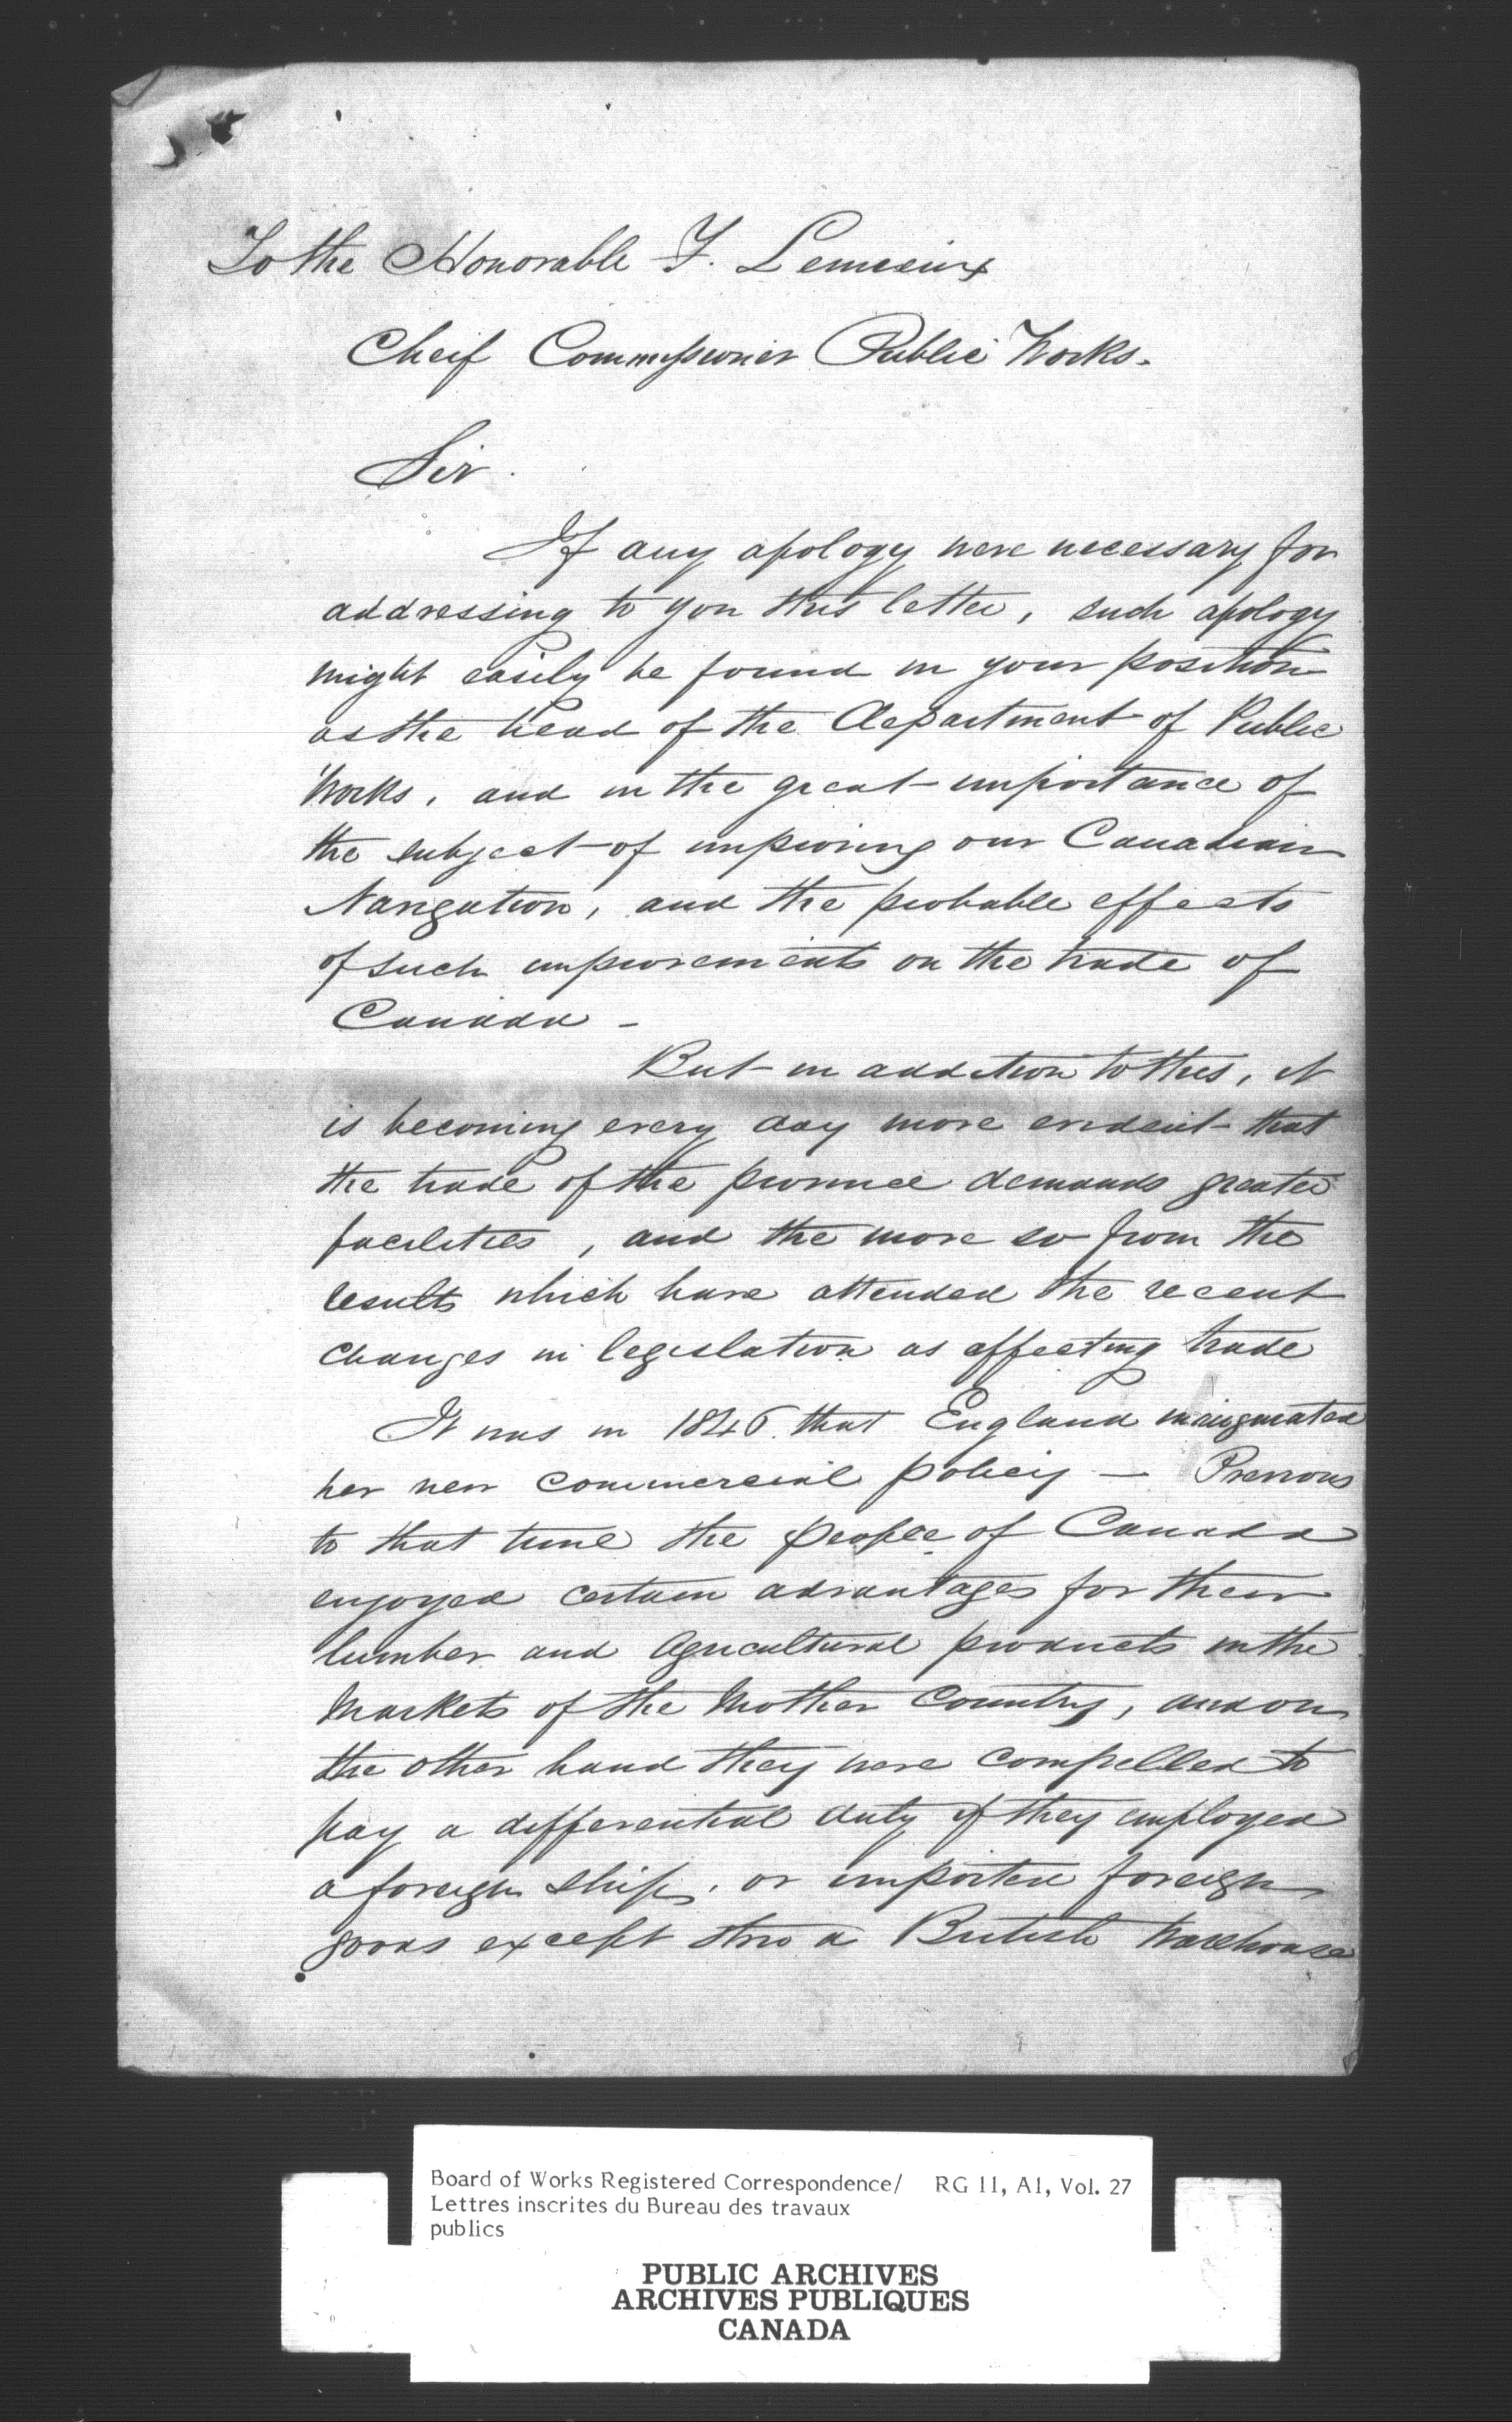 To the Honorable F. Lemieux
Cheif Commissioner Public Works.
Sir.
If any apology were necessary for
addressing to you this letter, such apology
might easily be found in your position
as the head of the Department of Public
Works, and in the great importance of
the subject of improving our Canadian
Navigation, and the probable effects
of such improvements on the trade of
Canada -
But in addition to this, it
is becoming every day more evident that
the trade of the province demands greater
facilities, and the more so from the
results which have attended the recent
changes in legislation as affecting trade
It was in 1846. that England inaugurated
her new commercial policy — Previous
to that time the people of Canada
enjoyed certain advantages for their
lumber and Agricultural products in the
Markets of the Mother Country, and on
the other hand they were compelled to
pay a differential duty if they employed
a foreign ship, or imported foreign
goods except thro a British Warehouse
Board of Works Registered Correspondence/ RG 11, A1, Vol. 27
Lettres inscrites du Bureau des travaux
publics
PUBLIC ARCHIVES
ARCHIVES PUBLIQUES
CANADA